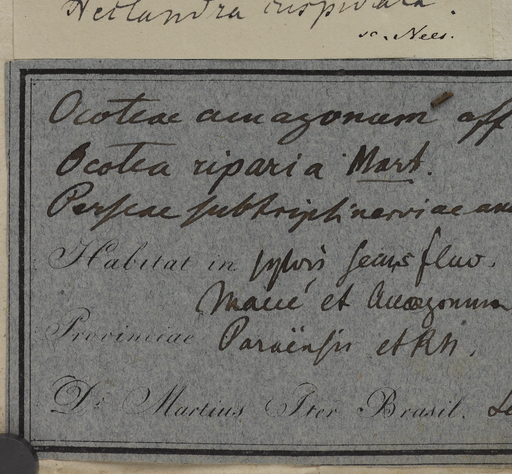 Nectandra cuspidata.
sec. Nees.
Ocoteae amazonum aff
Ocotea riparia Mart.
Perseae subtriplinerviae
Habitat in sylvis secus fluv.
et Amazonum
Provinciae Paraënsis et
Dr Martius Iter Brasil.